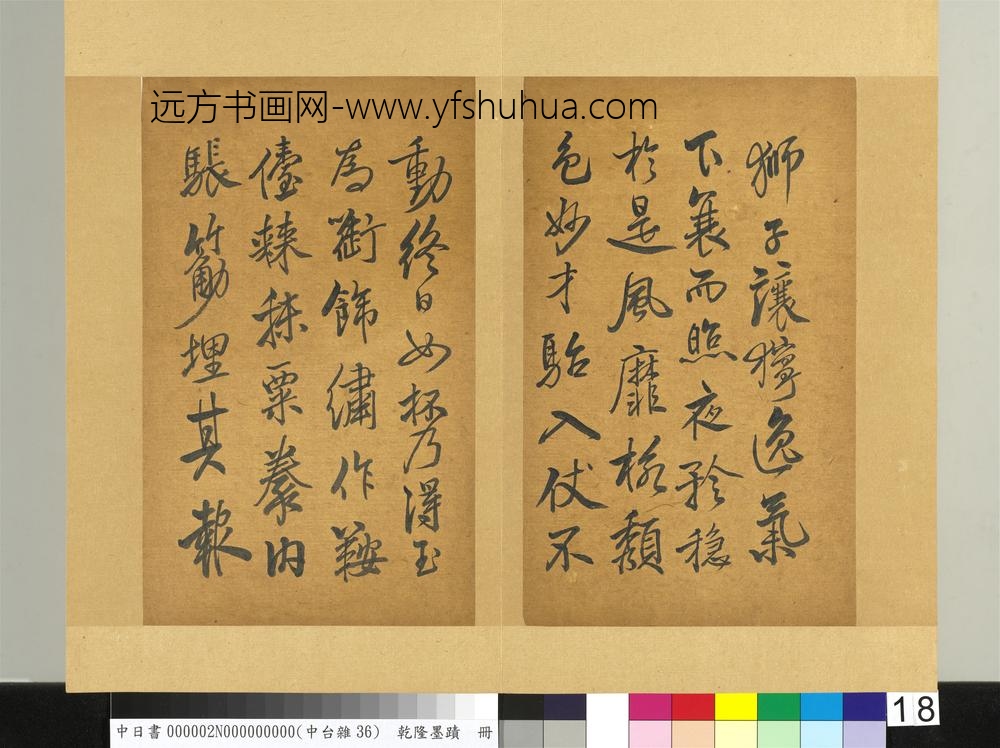 远方书画网-www.yfshuhua.com
獅子讓獰逸氣
下襄而照夜矜穩
於是風靡桜頹
色妙才駘入仗不
動終日如杯乃得玉
為銜飾繡作鞍
儓棘秣粟豢内
駿筋埋其報
中日書000002N000000000(中台雜36) 乾隆墨蹟 冊
18